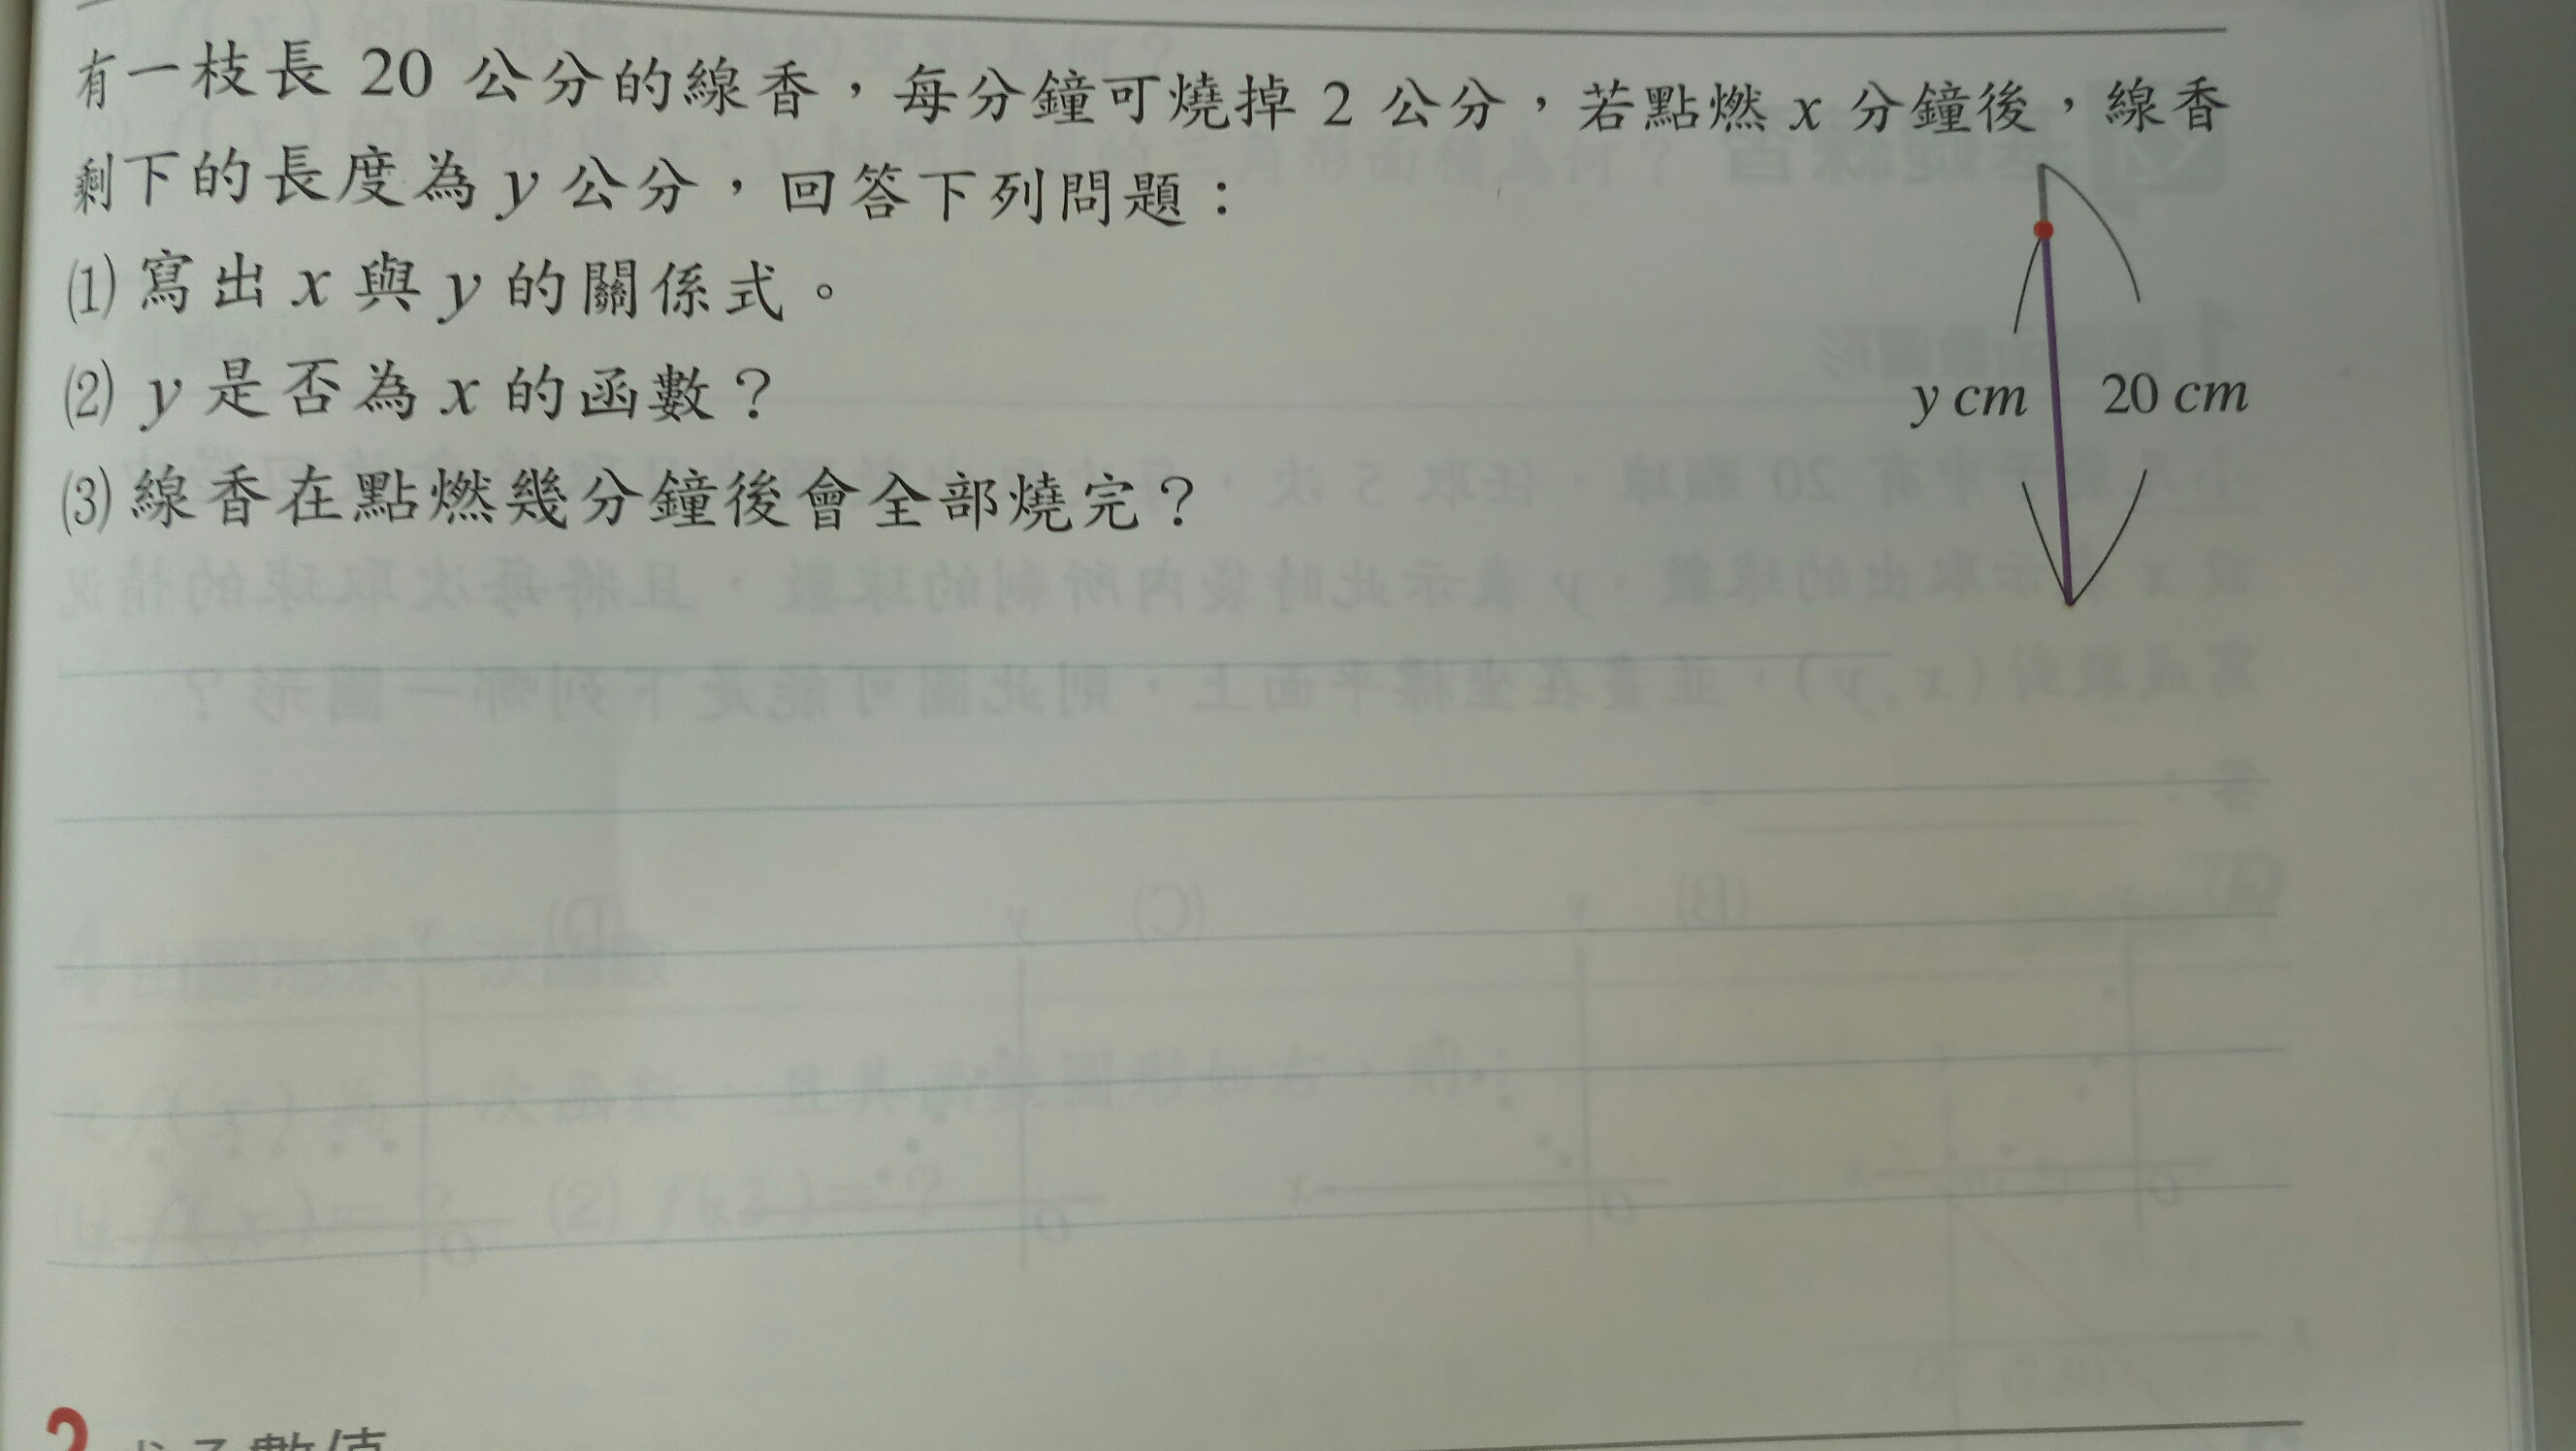 有一枝長 20 公分的線香，每分鐘可燒掉 2 公分，若點燃 x 分鐘後，線香
剩下的長度為 y 公分，回答下列問題：
⑴ 寫出 x 與 y 的關係式。
⑵ y 是否為 x 的函數？
⑶ 線香在點燃幾分鐘後會全部燒完？
y cm
20 cm
2
數值